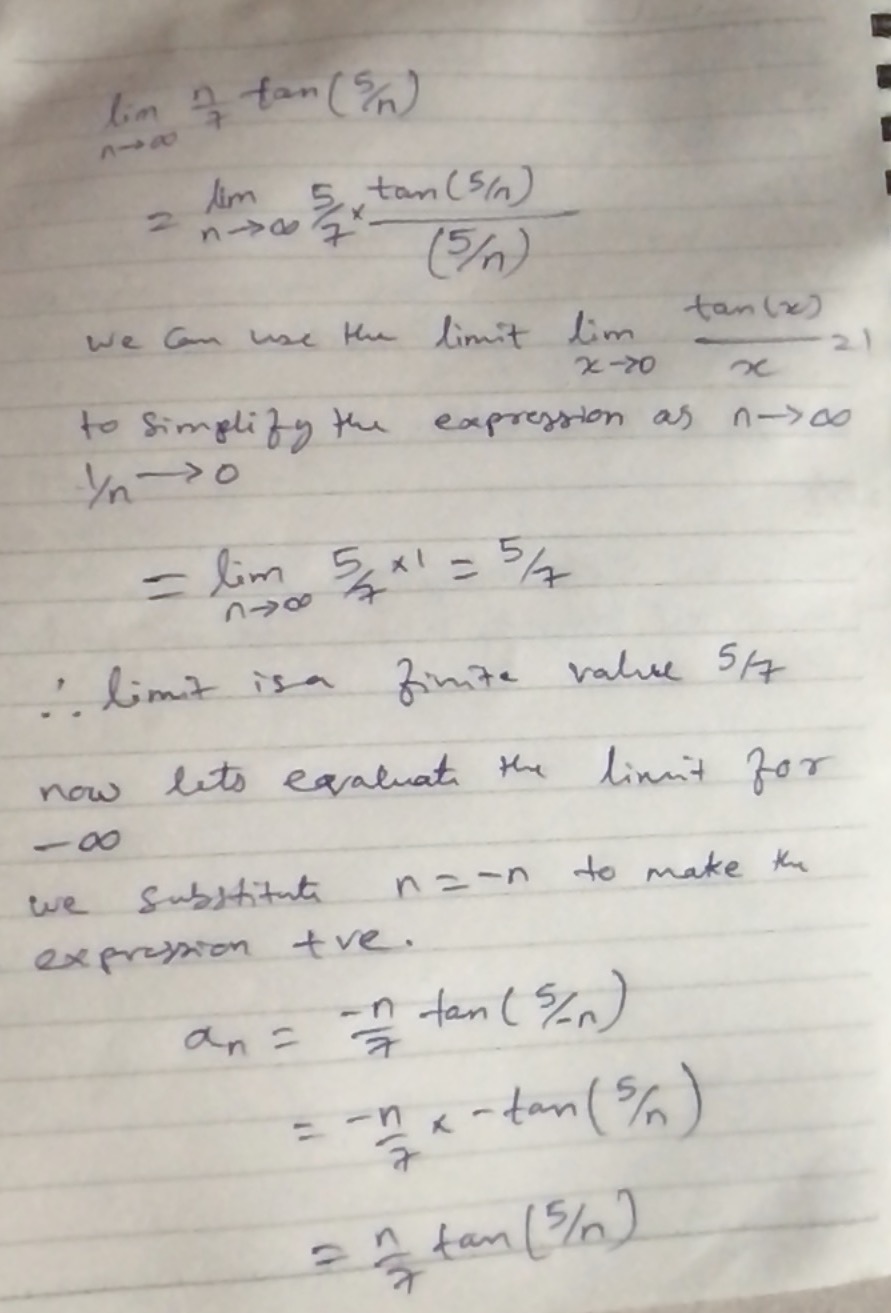 lim n→∞ n/7 tan(5/n)
= lim n→∞ 5/7 × tan(5/n) / (5/n)
we can use the limit lim x→0 tan(x)/x = 1
to simplify the expression as n→∞
1/n → 0
= lim n→∞ 5/7 ×1 = 5/7
∴ limit is a finite value 5/7
now lets evaluate the limit for
-∞
we substitute n=-n to make the
expression +ve.
an = -n/7 tan(5/-n)
= -n/7 × -tan(5/n)
= n/7 tan(5/n)